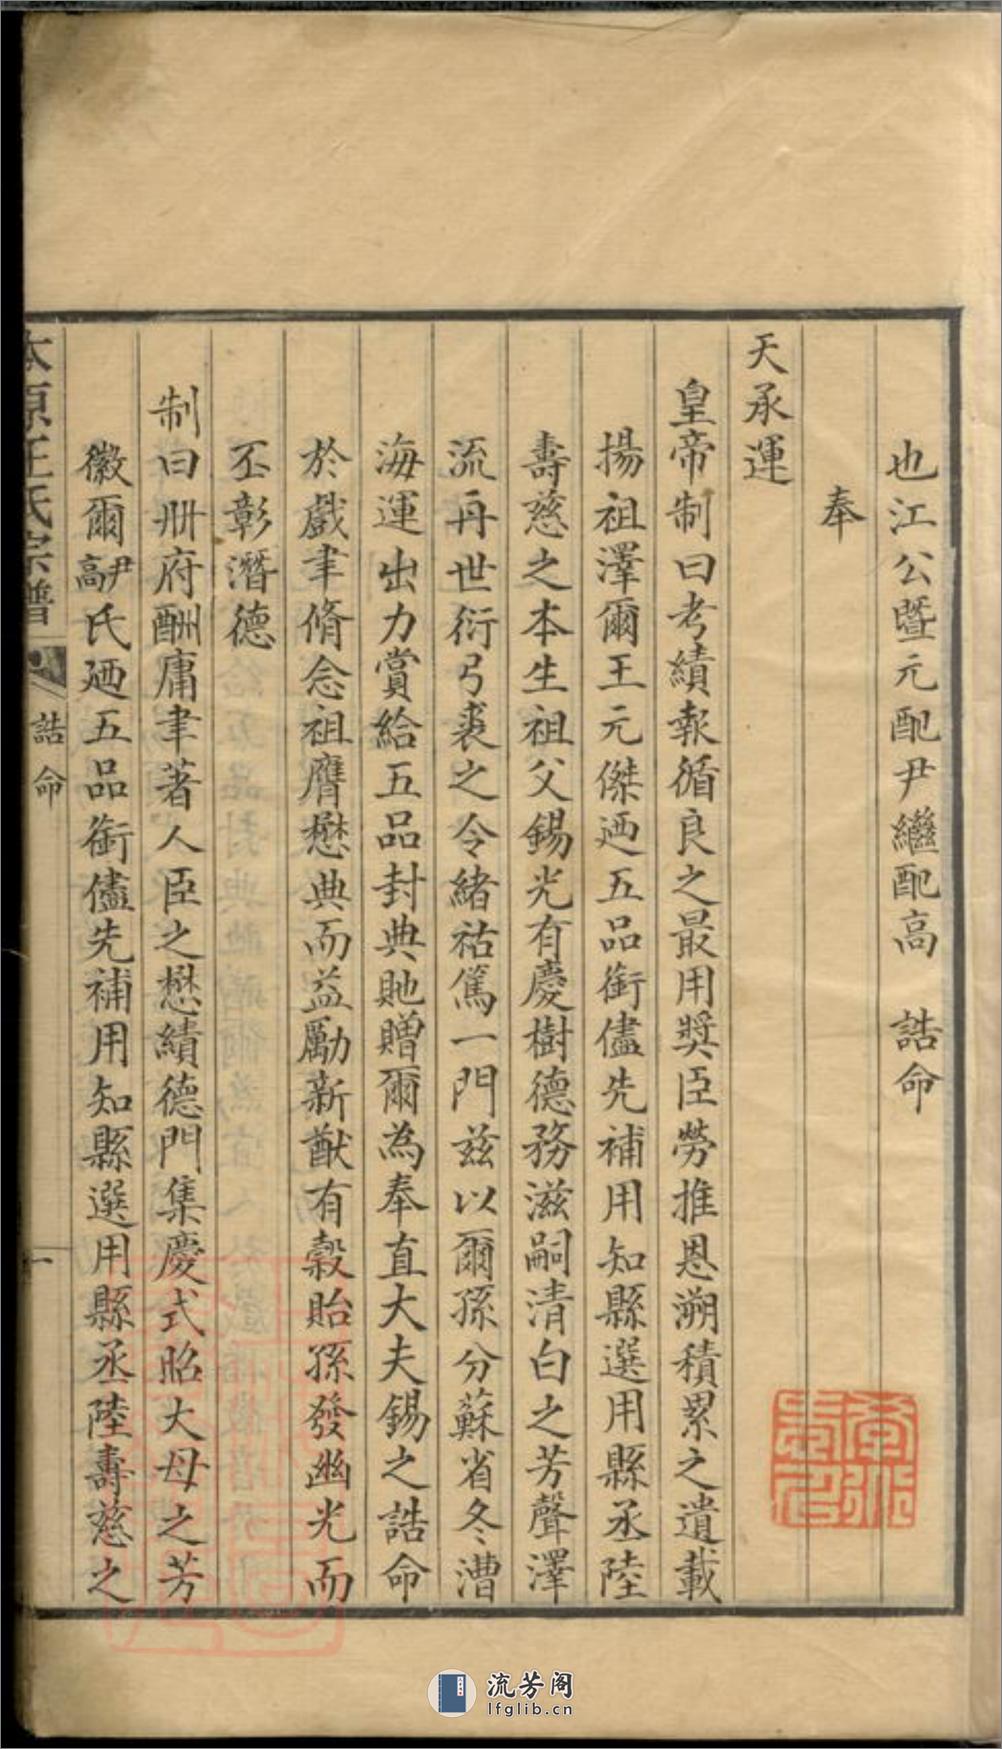 也江公暨元配尹繼配高　誥命
奉
天承運
皇帝制曰考績報循良之最用獎臣勞推恩溯積累之遺載
揚祖澤爾王元傑廼五品銜儘先補用知縣選用縣丞陸
壽慈之本生祖父錫光有慶樹德務滋嗣清白之芳聲澤
流再世衍弓裘之令緒祜篤一門兹以爾孫分蘇省冬漕
海運出力賞給五品封典貤贈爾為奉直大夫錫之誥命
於戲聿脩念祖膺懋典而益勵新猷有穀貽孫發幽光而
丕彰潛德
制曰冊府酬庸聿著人臣之懋績德門集慶式昭大母之芳
徽爾尹高氏廼五品銜儘先補用知縣選用縣丞陸壽慈之
原王氏宗譜
誥命
一
流芳阁
lfglib.cn